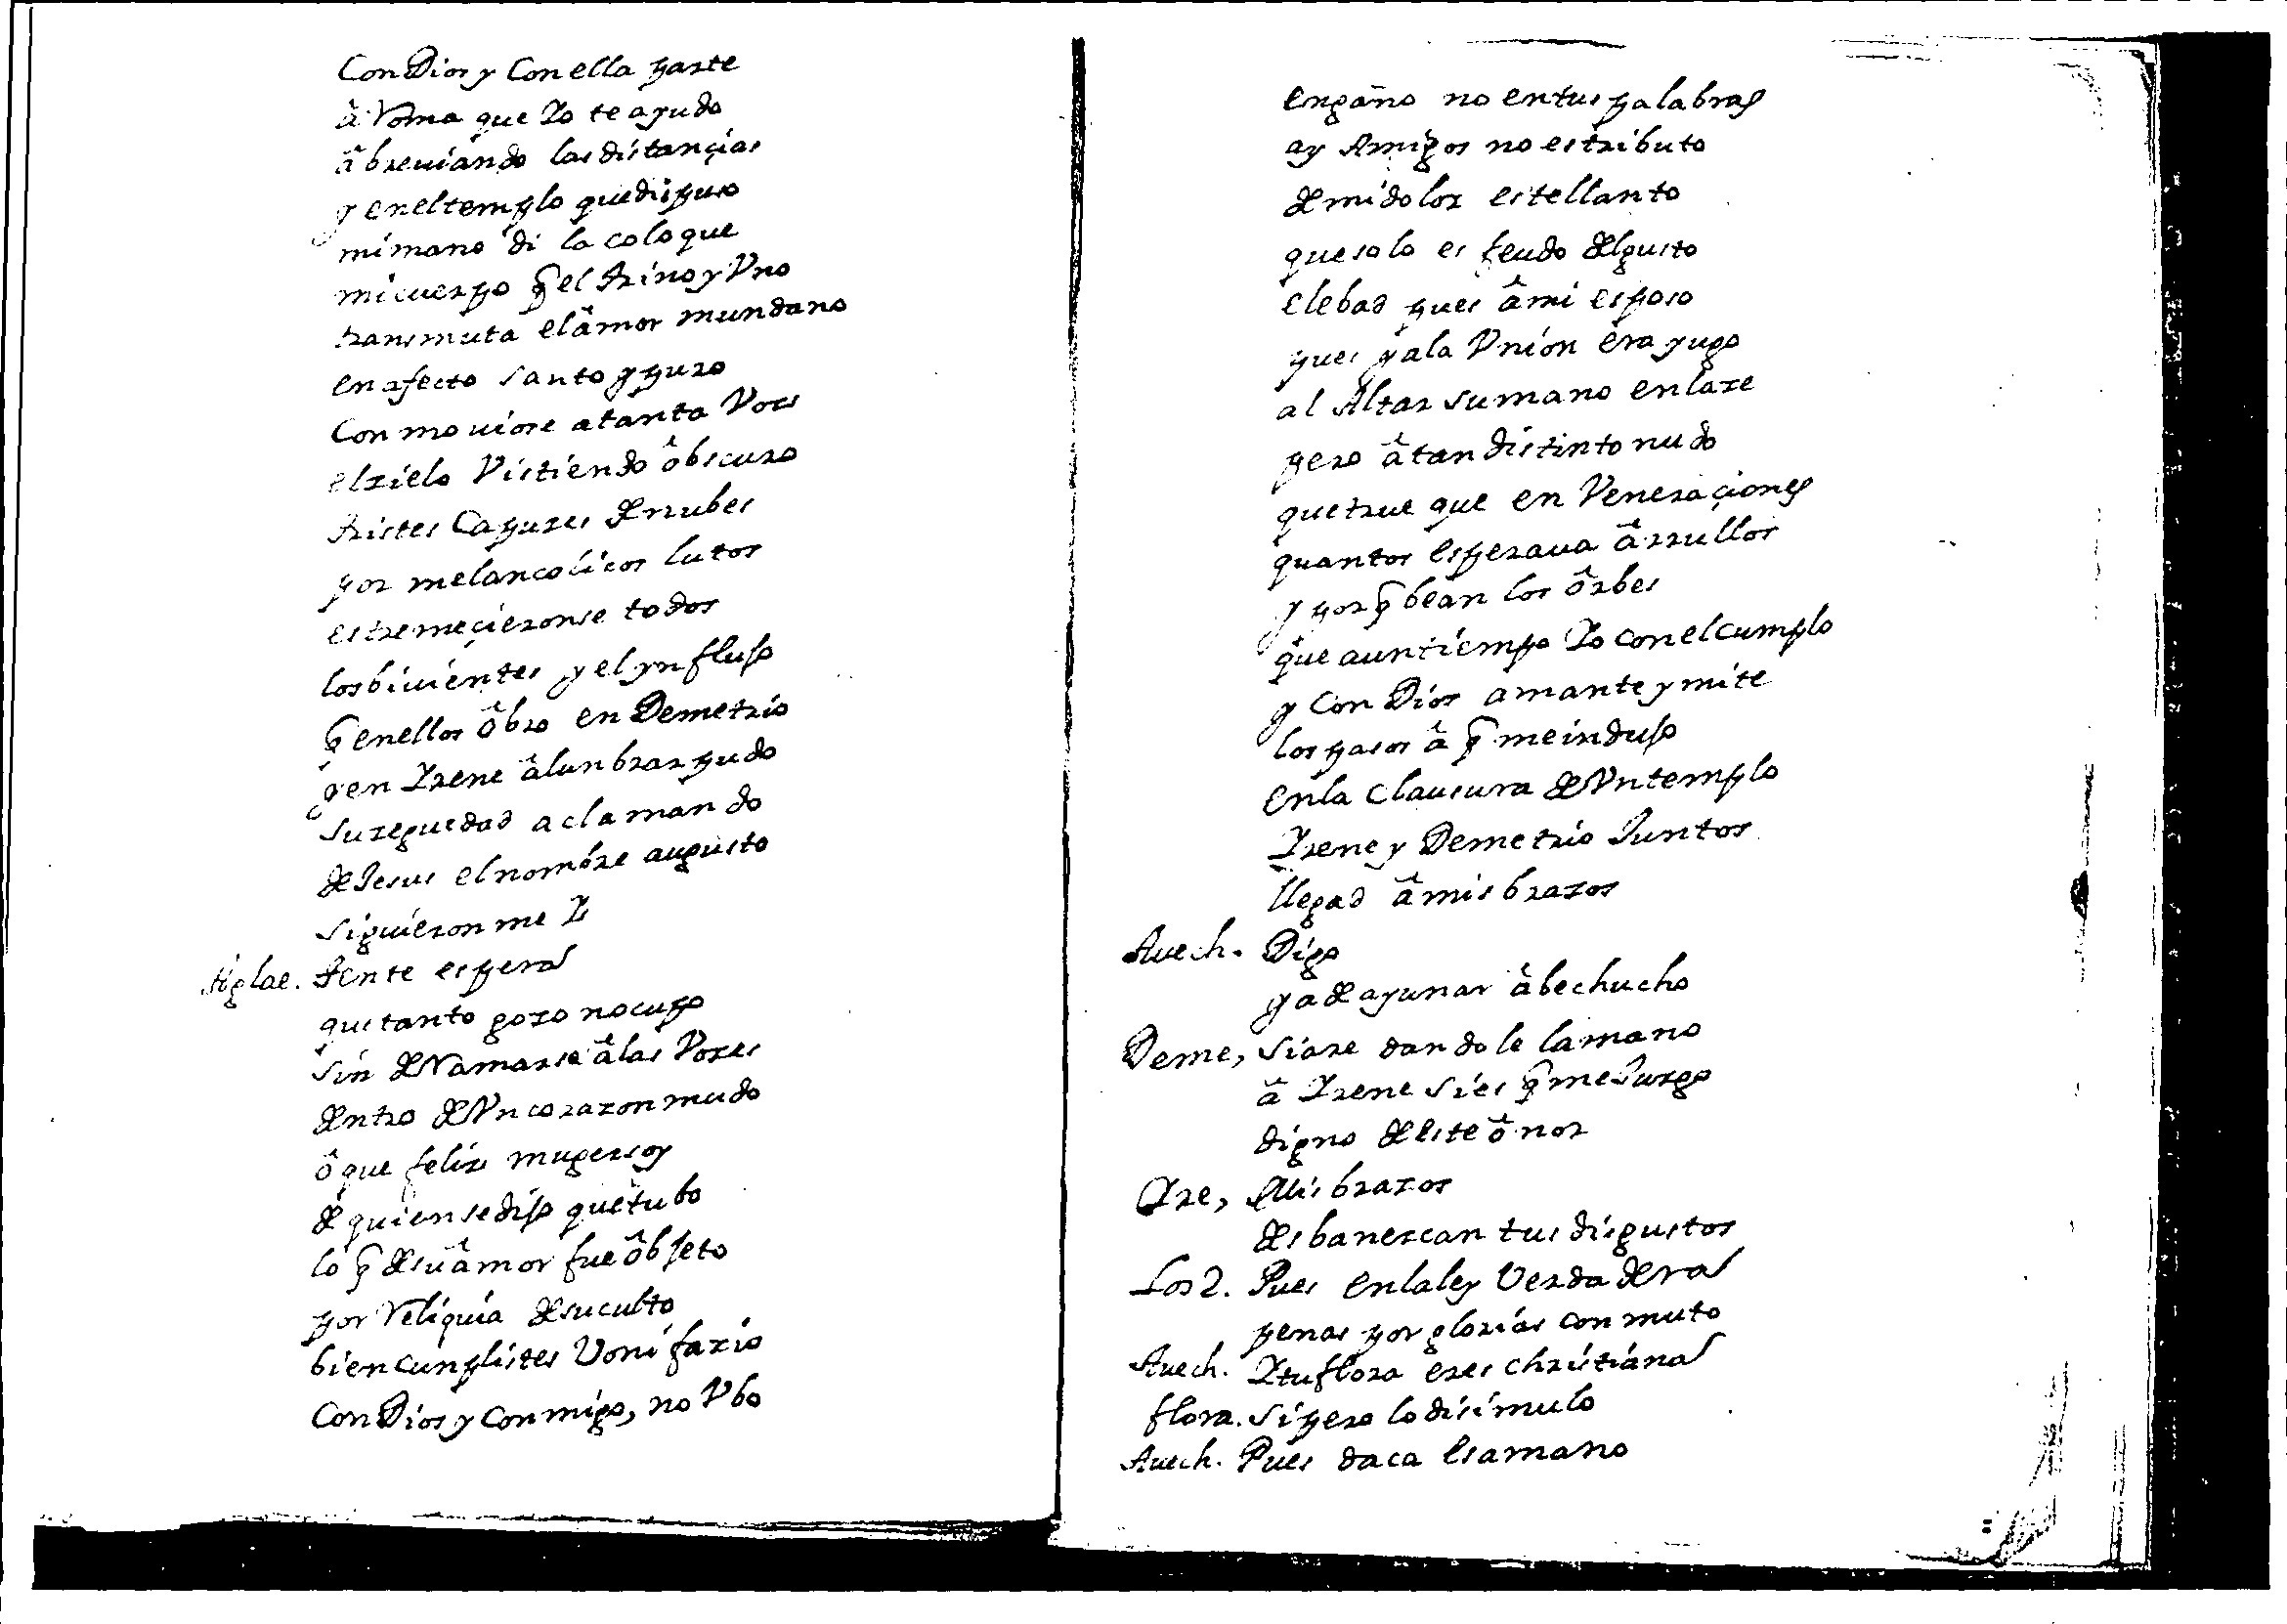 Con Dios y Con ella parte
â Roma que Yo te ayudo
âbreuiando las distançias
y en el templo que dispuso
mi mano di la coloque
mi cuerpo q̃ el trino y Vno
transmuta el âmor mundano
en afecto santo y puro
Conmouiose a tanta Voz
el zielo Vistiendo ôbscuro
tristes Capuzes de nubes
por melancolicos lutos
estremeçieronse todos
los biuientes y el ynflujo
q̃ en ellos ôbro en Demetrio
y en Yrene âlunbrar pudo
su zeguedad aclamando
de Jesus el nombre augusto
siguieron me Y
Aglae. tente espera
que tanto gozo no cupo
sin derramarse â las Vozes
dentro de Vn corazon mudo
ô que feliz muger soy
de quien se dijo que tubo
lo q̃ de su âmor fue ôbjeto
por Reliquia de su culto
bien cunplistes Vonifazio
Con Dios y Conmigo, no Vbo
engaño no en tus palabras
ay Amigos no es tributo
de mi dolor este llanto
que solo es feudo del gusto
elebad pues â mi esposo
pues ya la Vnion era yugo
al Altar su mano enlaze
pero â tan distinto nudo
que trueque en Veneraçiones
quantos esperaua ârrullos
y porq̃ bean los ôrbes
que a un tiempo Yo con el cumplo
y Con Dios amante ymite
los pasos â q̃ me indujo
en la Clausura de Vn templo
Yrene y Demetrio Juntos
llegad â mis brazos
Auech. Digo
ya de ayunar âbechucho
Deme, Si aze dandole la mano
â Yrene si es q̃ me Juzgo
digno de este ônor
Yre, Mis brazos
desbanezcan tus disgustos
Los 2. Pues en la ley Verdadera
penas por glorias conmuto
Auech. Y tu flora eres christiana
flora. Si pero lo disimulo
Auech. Pues daca esa mano